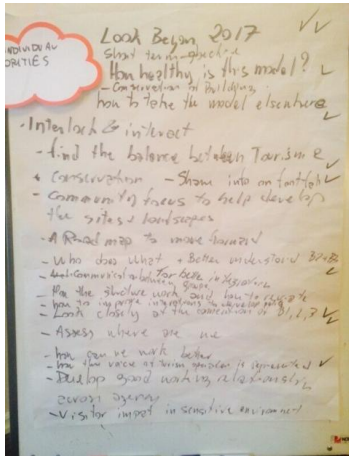 INDIVIDUAL
ORITIES
Look Began 2017
Short term-
How healthy is this model?
- Conservation to Building
how to take the model elsewhere
- Interlock & interest
- find the balance between Tourism &
Conservation - Share info on
- Community focus to help develop
the sites & landscapes
- A Road map to move forward
- Who does what + Better understand
- Communication between groups
- How the structure work and how to
- how to improve
- Look closely at the conservation of
- Assess where are we
- how can we work better
- how the voice of is represented
- Develop good working relationship
across agency
- Visitor impact in sensitive environment